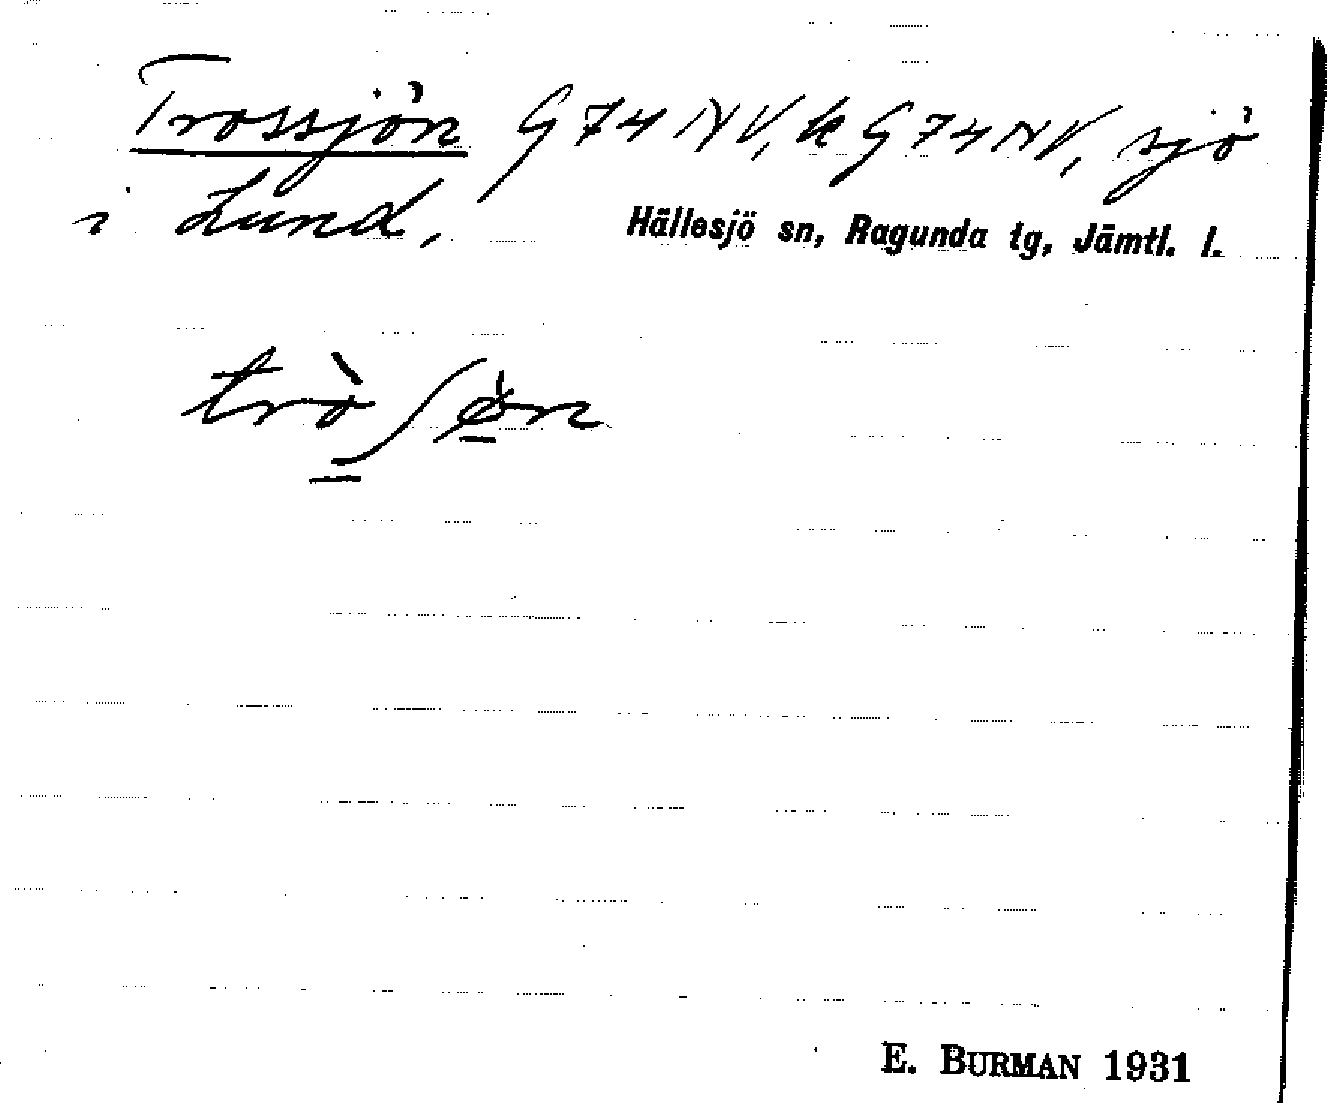 Trossjön G74NV, k G74NV, sjö
i Lund, Hällesjö sn, Ragunda tg, Jämtl. l.
trò̲ʃø̲n
E. BURMAN 1931